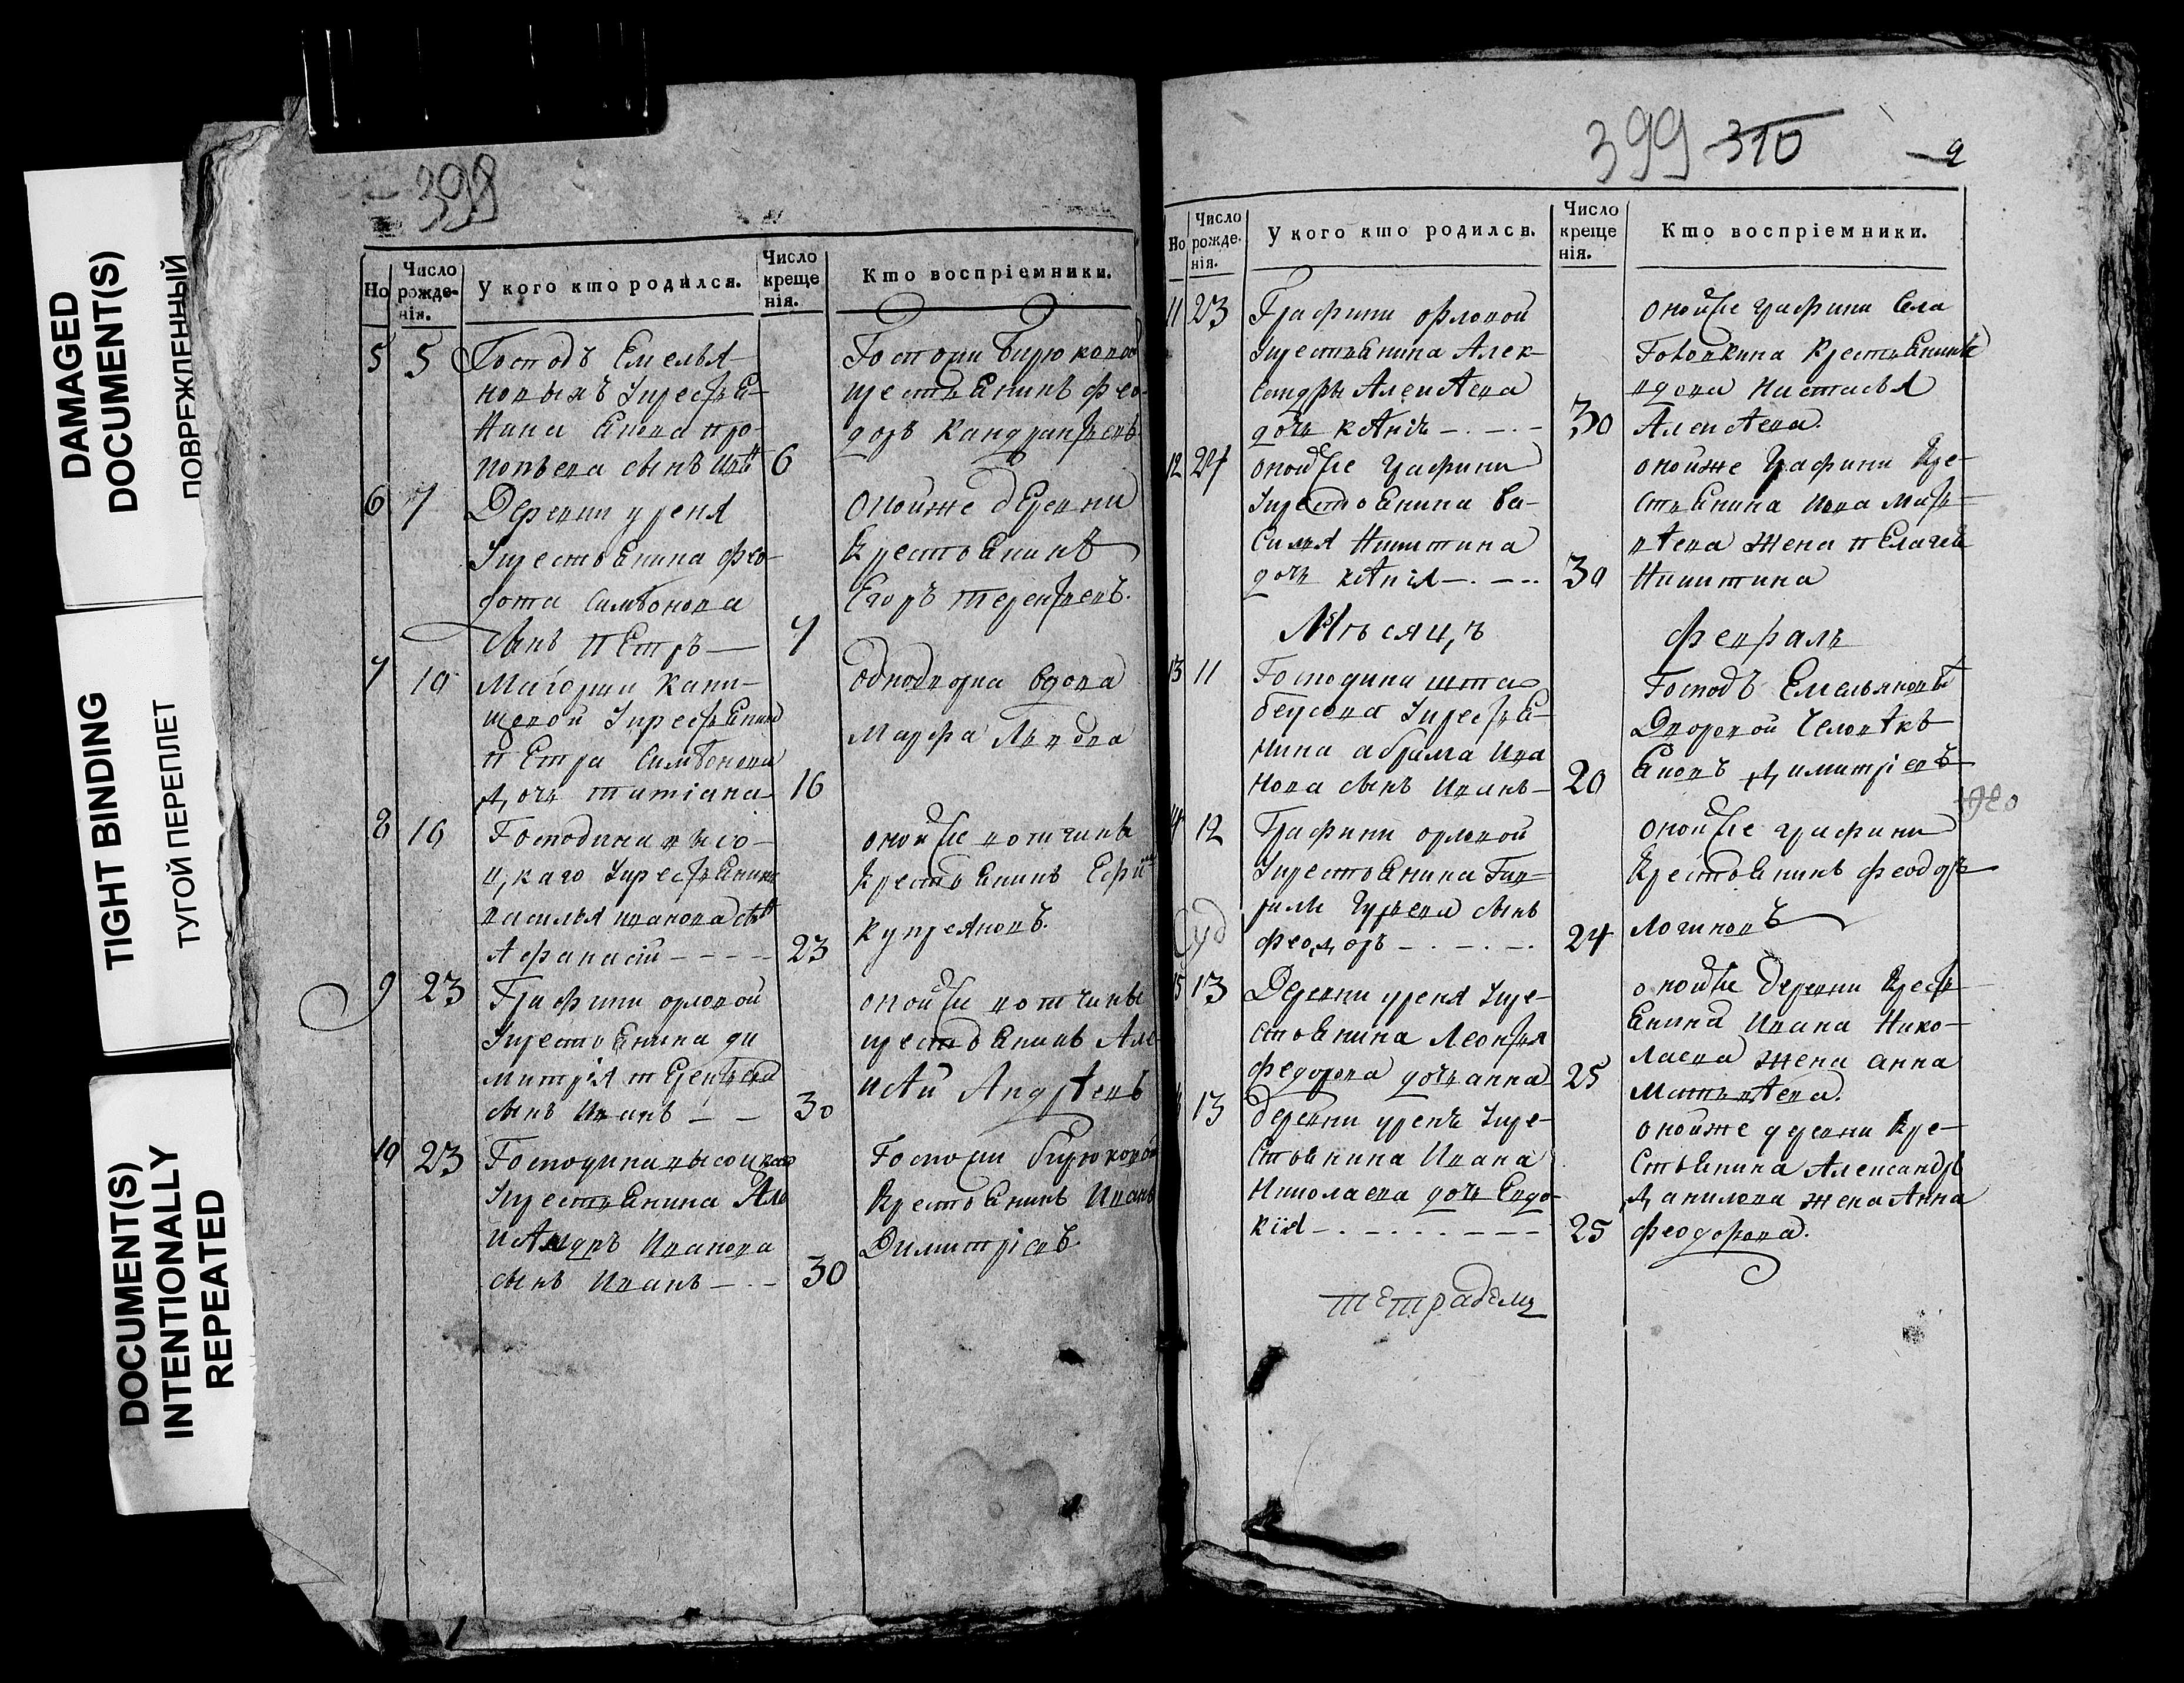 DAMAGED
DOCUMENT(S)
ПОВРЕЖДЕННЫЙ
TIGHT BINDING
ТУГОЙ ПЕРЕПЛЕТ
DOCUMENT(S)
INTENTIONALLY
REPEATED
398
Но
Число рожденія.
У кого кто родился.
Число крещенія.
Кто воспріемники.
5 5 Господъ Емелья-
новыхъ крестья-
нина
сынъ 6
Госпожи Бирюковой
крестьянинъ Фео-
доръ
6 7 Деревни уреня
крестьянина Фео-
дота Симѣонова
сынъ Петръ 7
оной же деревни
крестьянинъ
Егоръ Терентьевъ.
7 10
крестьянина
Петра Симѣонова
дочь татіана 16
однодворка вдова
Марфа Львова
8 16 Господина высо-
цкаго крестьянина
василья иванова
Афанасій 23
оной же вотчины
крестьянинъ
купреяновъ.
9 23 Графини орловой
крестьянина ди
митрія терентьева
сынъ Иванъ 30
оной же вотчины
крестьянинъ Але
ксѣй Андрѣевъ
10 23 Господина высоцкаго
крестьянина
Иванова
сынъ Иванъ 30
Госпожи Бирюковой
крестьянинъ Иванъ
Димитріевъ
399 310
Но
Число рожденія.
У кого кто родился.
Число крещенія.
Кто воспріемники.
11 23 Графини орловой
крестьянина Алек-
сандры Алексѣева
дочь 30
оной же графини села
Головкина крестьянина
вдова настасья
Алексѣева.
12 24 оной же графини
крестьянина ва-
силья Никитина
дочь 30
оной же графини кре-
стьянина Мат-
вѣева жена пелагея
Никитина
Мѣсяцъ Февраль
13 11 Господина
крестья-
нина абрама ива
нова сынъ иванъ 20
Господъ Емельяновыхъ
Дворовой Человѣкъ
Димитріевъ
14 12 Графини орловой
крестьянина Гав-
рилы Гурьева сынъ
Феодоръ 24
оной же графини
крестьянинъ Феодоръ
Логиновъ
15 13 Деревни уреня кре-
стьянина Леонтья
Федорова дочь анна 25
оной же деревни крест
янина Ивана Нико-
лаева жена анна
Матвѣева.
13 деревни уренъ кре-
стьянина Ивана
Николаева дочь Евдо-
кія 25
оной же деревни кре-
стьянина Александра
Данилова жена Анна
феодорова.